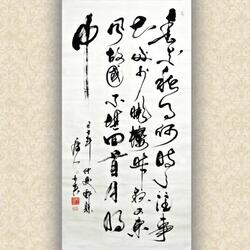 春花秋月何時了往事
知多少小樓昨夜又東
風故國不堪回首月明
中